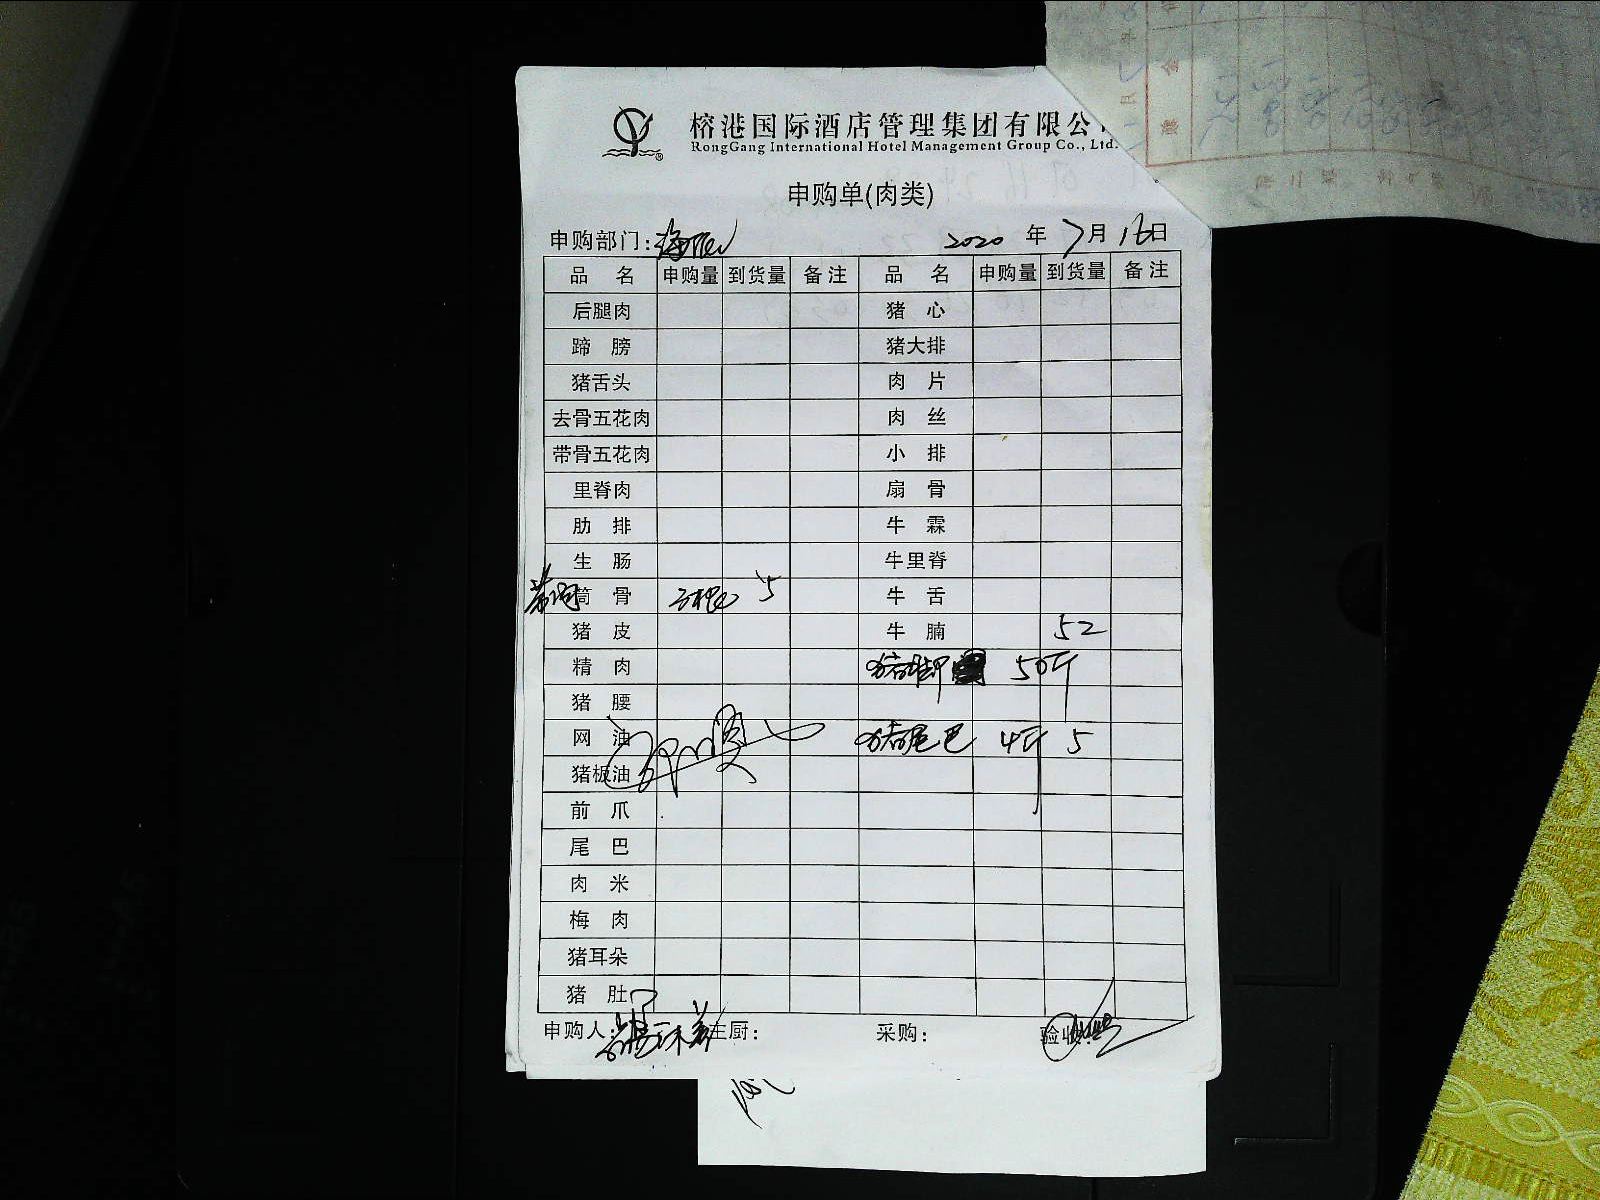 榕港国际酒店管理集团有限公
RongGang International Hotel Management Group Co., Ltd.
申购单(肉类)
申购部门: 2020 年 7 月 16 日
品 名 申购量 到货量 备注 品 名 申购量 到货量 备注
后腿肉 猪 心
蹄 膀 猪大排
猪舌头 肉 片
去骨五花肉 肉 丝
带骨五花肉 小 排
里脊肉 扇 骨
肋 排 牛 霖
生 肠 牛里脊
筒 骨 5 牛 舌
猪 皮 牛 腩 52
精 肉 猪脚 50斤
猪 腰
网 油 猪尾巴 4斤 5
猪板油
前 爪
尾 巴
肉 米
梅 肉
猪耳朵
猪 肚
申购人: 主厨: 采购: 验收: